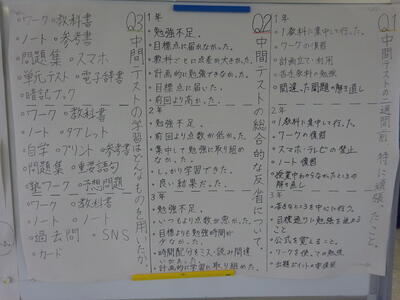 Q1
中間テストの二週間前、特に頑張ったこと。
1年
・1教科に集中して行った。
・ワークの復習
・計画立て・利用
・苦手教科の勉強
・間違った問題の解き直し
2年
・1教科に集中して行た。
・ワークの復習
・スマホ・テレビの禁止
・ノート復習
・授業中わからなかったところの
解き直し
3年
・公式を覚えること。
・ワークを使っての勉強
Q2
中間テストの総合的な反省について。
1年
・勉強不足。
・目標点に届かなかった。
・教科ごとに点差が大きかった。
・計画的に勉強できなかった。
・目標点に届いた。
・前回より高かった。
2年
・勉強不足。
・前回より点数が低かった。
・集中して勉強に取り組め
なかった。
・しっかり学習できた。
・良い結果だった。
3年
・勉強不足。
・いつもより点数が悪かった。
・目標よりも勉強時間が
少なかった。
・時間配分をミス・読み間違
いがあった。
・計画的に学習に取り組めた。
Q3
中間テストの学習はどんなものを用いたか
・ワーク ・教科書
・ノート ・参考書
・問題集 ・スマホ
・単元テスト ・電子辞書
・暗記ブック
・ワーク ・教科書
・ノート ・タブレット
・自学 ・プリント ・参考書
・問題集 ・重要語句
・塾ワーク ・予想問題
・ワーク ・教科書
・ノート ・ノート
・過去問 ・SNS
・カード